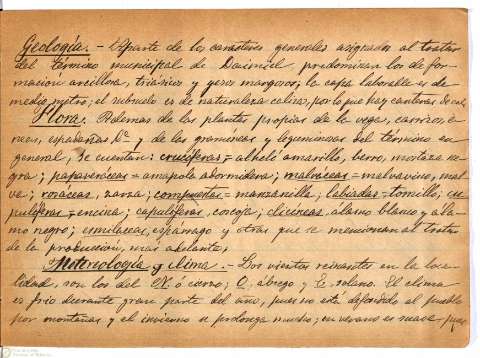 Geología. - Aparte de los caracteres generales asignados al tratar
del término municipal de Daimiel predominan los de for-
mación arcillosa, triásicos y yesos margosos; la capa laborable es de
medio metro; el subsuelo es de naturaleza caliza, por lo que hay canteras de cal.
Flora. Además de las plantes propias de la vega, carrizo, e-
neas, espadañas &ª y de las gramíneas y leguminosas del término en
general, se cuentan: crucíferas = alhelí amarillo, berro, mostaza ne-
gra; papaveráceas = amapola adormidera; malváceas = malvavino, mal-
ve; rosáceas, zarza; compuestas = manzanilla; labiadas = tomillo; cu-
pulíferas = encina; capulíferas, coscoja; álamo blanco y ála-
mo negro; esmiláceas, espárrago y otras que se mencionan al tratar
de la producción, más adelante;
Meteriología y clima. - Los vientos reinantes en la loca-
lidad, son los del N. ó cierzo; O, abrego y E. solano. El clima
es frío durante gran parte del año, pues no está defendido el pueblo
por montañas y el invierno se prolonga mucho; en verano es suave pues